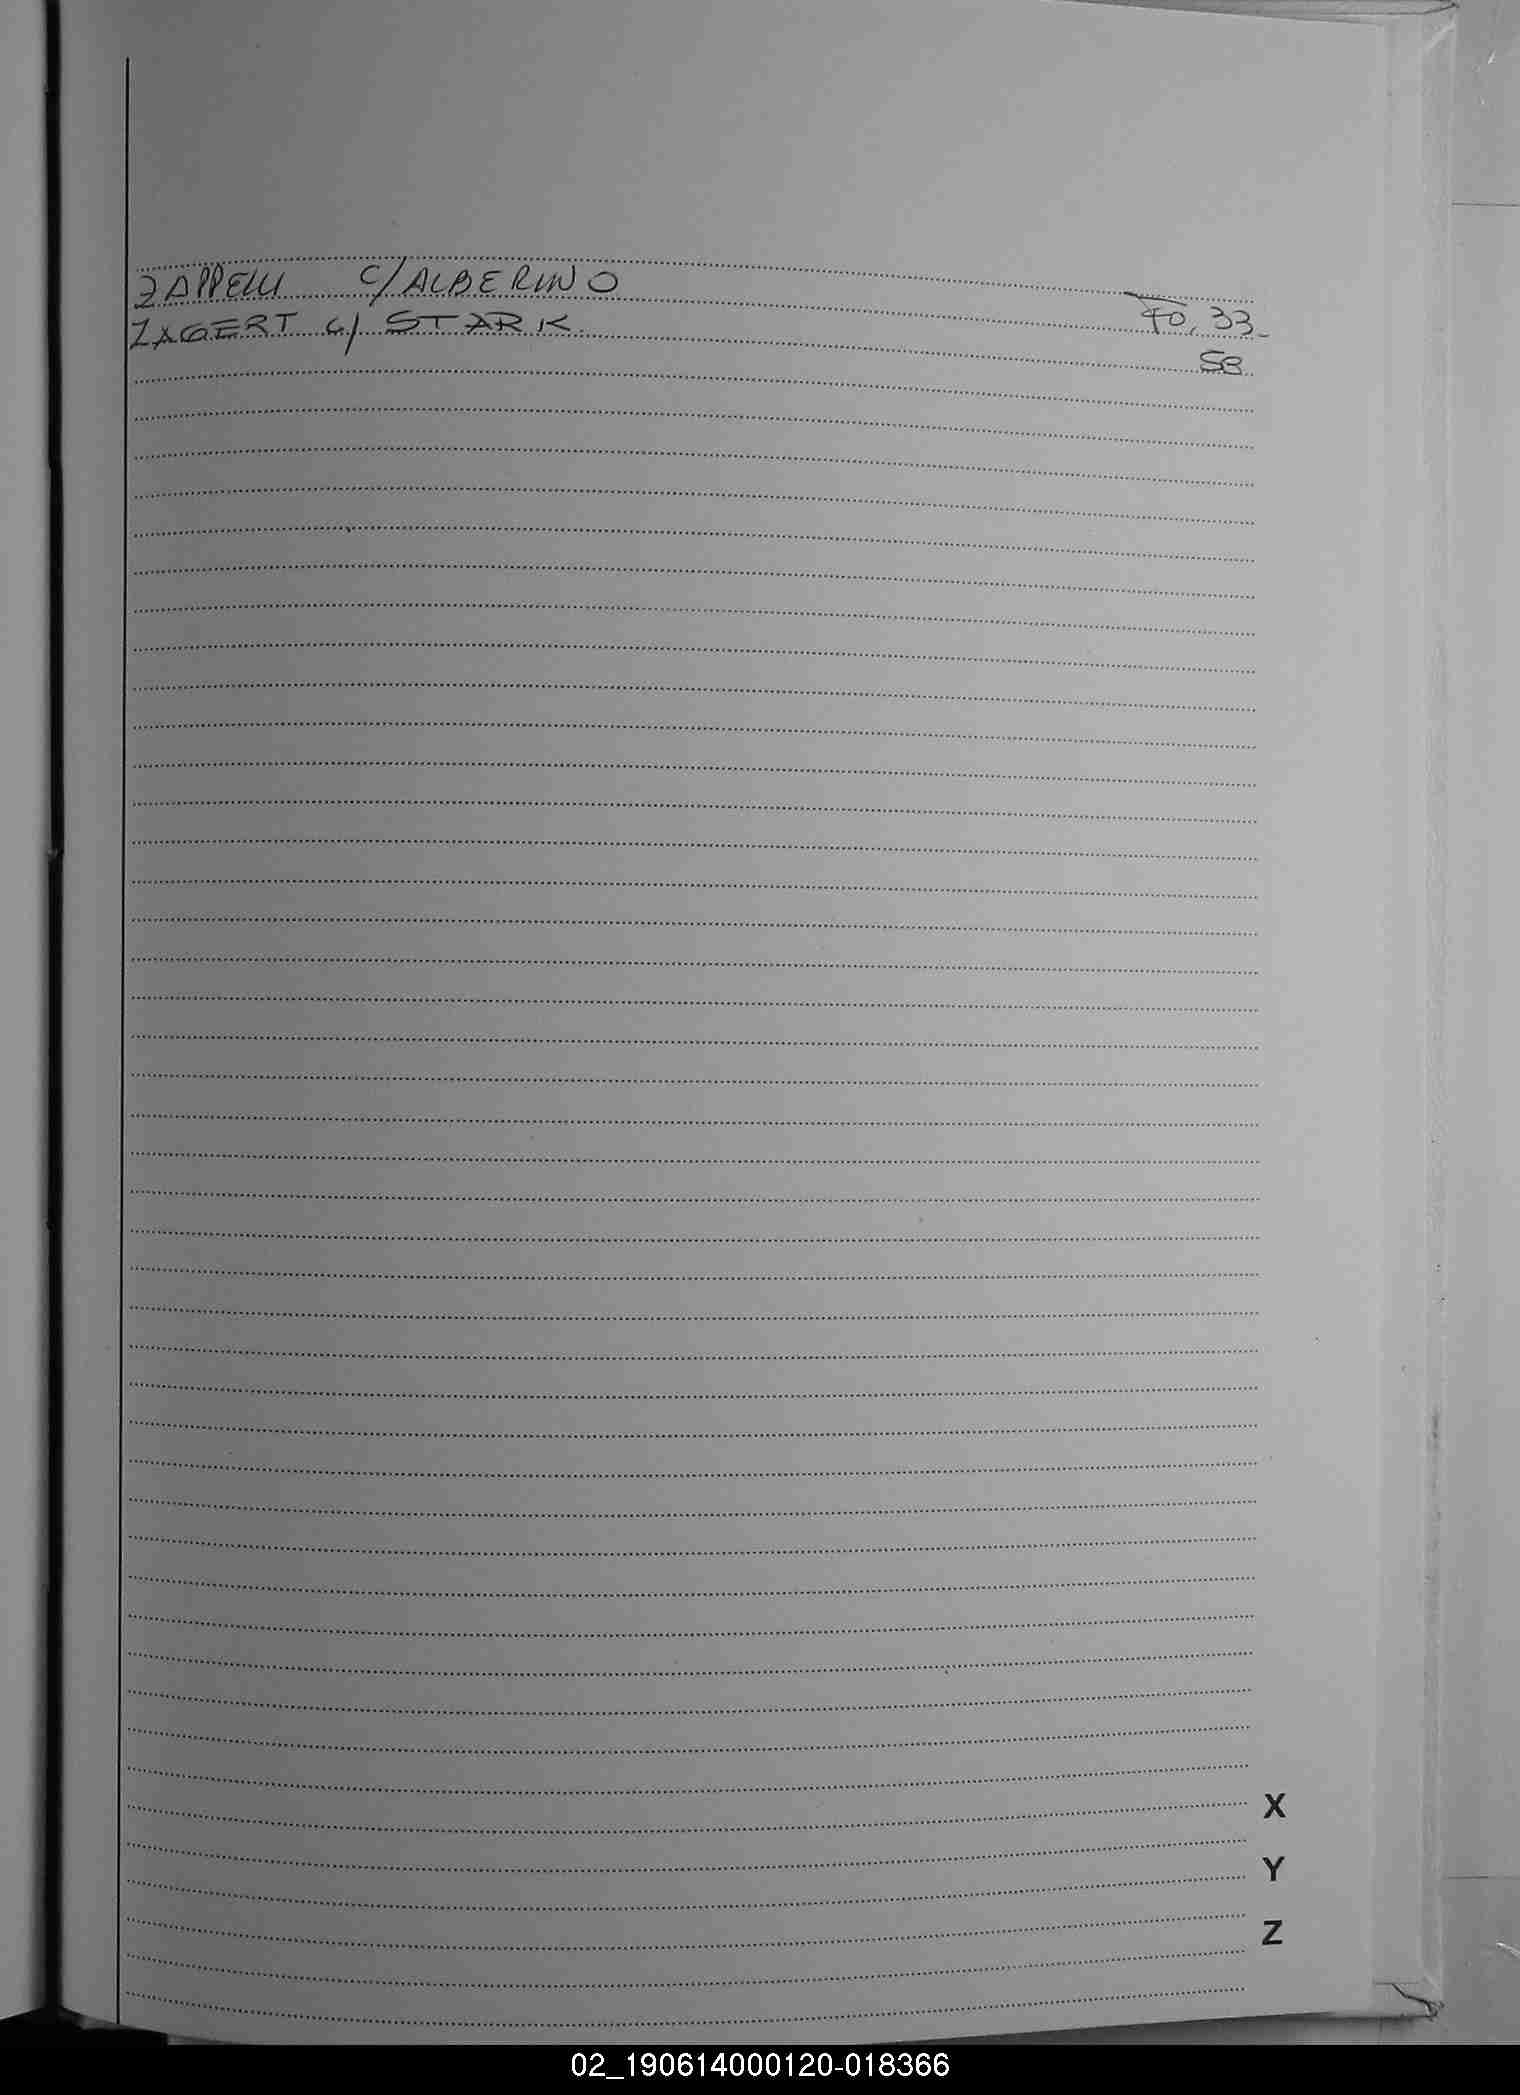 ZAPPELLI C/ALBERINO Fo, 33-
ZAGERT C/ STARK. 58
X
Y
Z
02_190614000120-018366